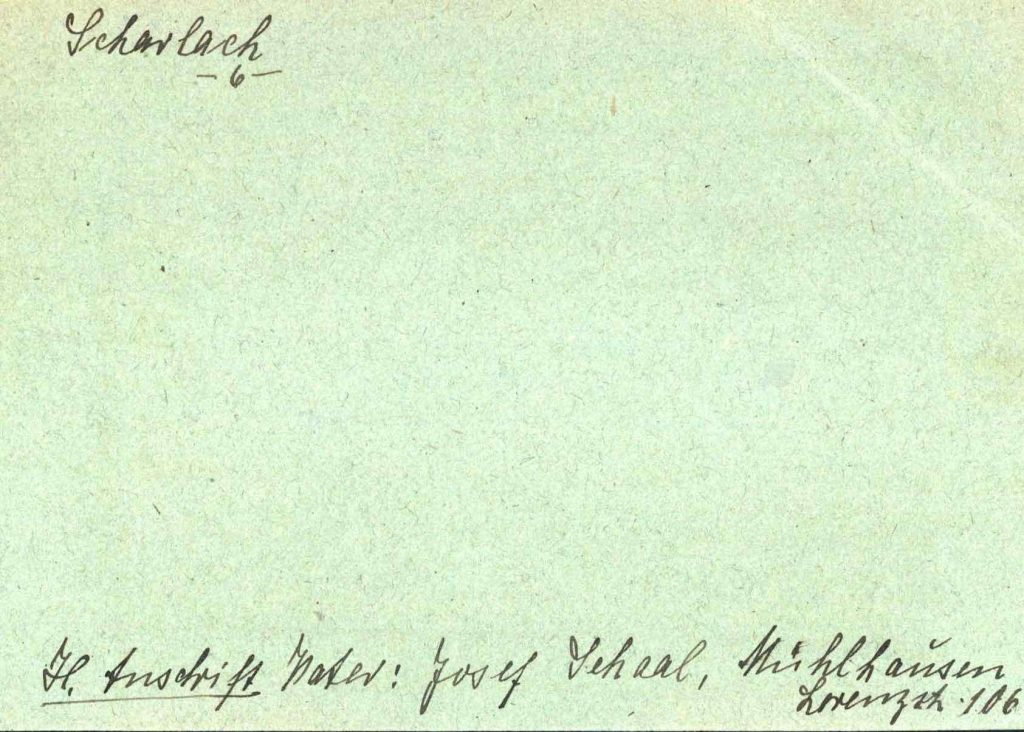 Scharlach
- 6 -
H. Anschrift Vater: Josef Schaal, Mühlhausen
Lorenzstr. 106